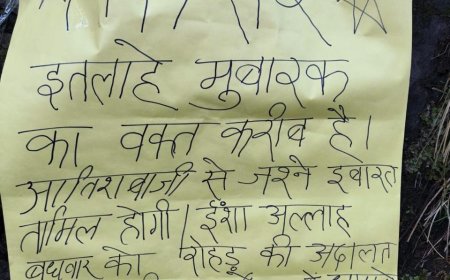 इतलाहे मुबारक
का वक्त करीब है।
आतिशबाजी से जश्ने इबारत
तामिल होगी। इंशा अल्लाह
बधवार को रोहडू की अदालत